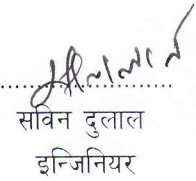 सविन दुलाल
इन्जिनियर